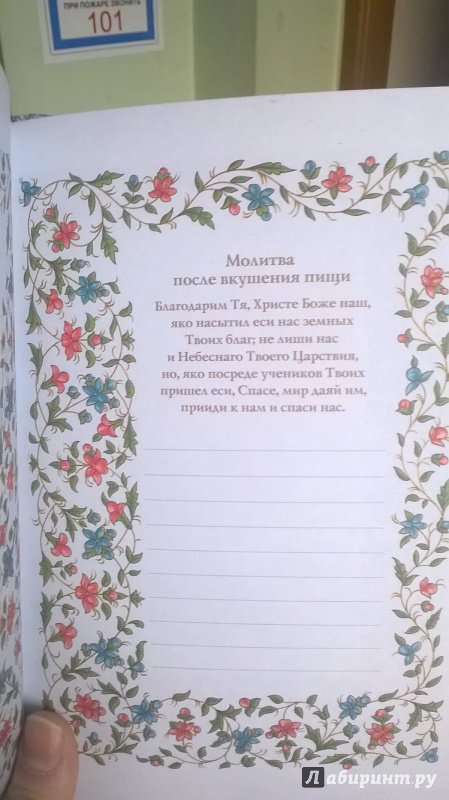 ПРИ ПОЖАРЕ ЗВОНИТЬ
101
Молитва
после вкушения пищи
Благодарим Тя, Христе Боже наш,
яко насытил еси нас земных
Твоих благ; не лиши нас
и Небеснаго Твоего Царствия,
но, яко посреде учеников Твоих
пришел еси, Спасе, мир даяй им,
прииди к нам и спаси нас.
Лабиринт.ру